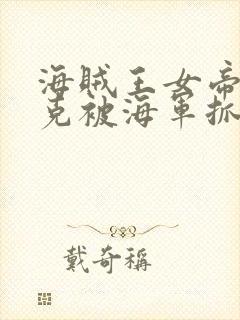 海賊王女帝
克被海軍抓
戴奇稱